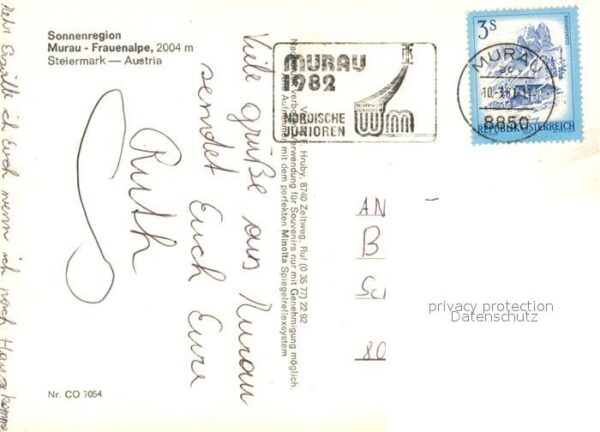 Sonnenregion
Murau - Frauenalpe, 2004 m
Steiermark — Austria
MURAU
1982
NORDISCHE
JUNIOREN
WM
3S
REPUBLIK ÖSTERREICH
MURAU
8850
Viele Grüße aus Murau
sendet Euch Eure
Ruth
Mehr Erzälle ich Euch wenn ich noch Hause komme
F. Hruby, 8740 Zeltweg, Ruf (0 35 77) 22 92
Verwendung für Souvenirs nur mit Genehmigung möglich.
mit dem perfekten Minolta Spiegelreflexsystem
AN
B
80
privacy protection
Datenschutz
Nr. CO 7054